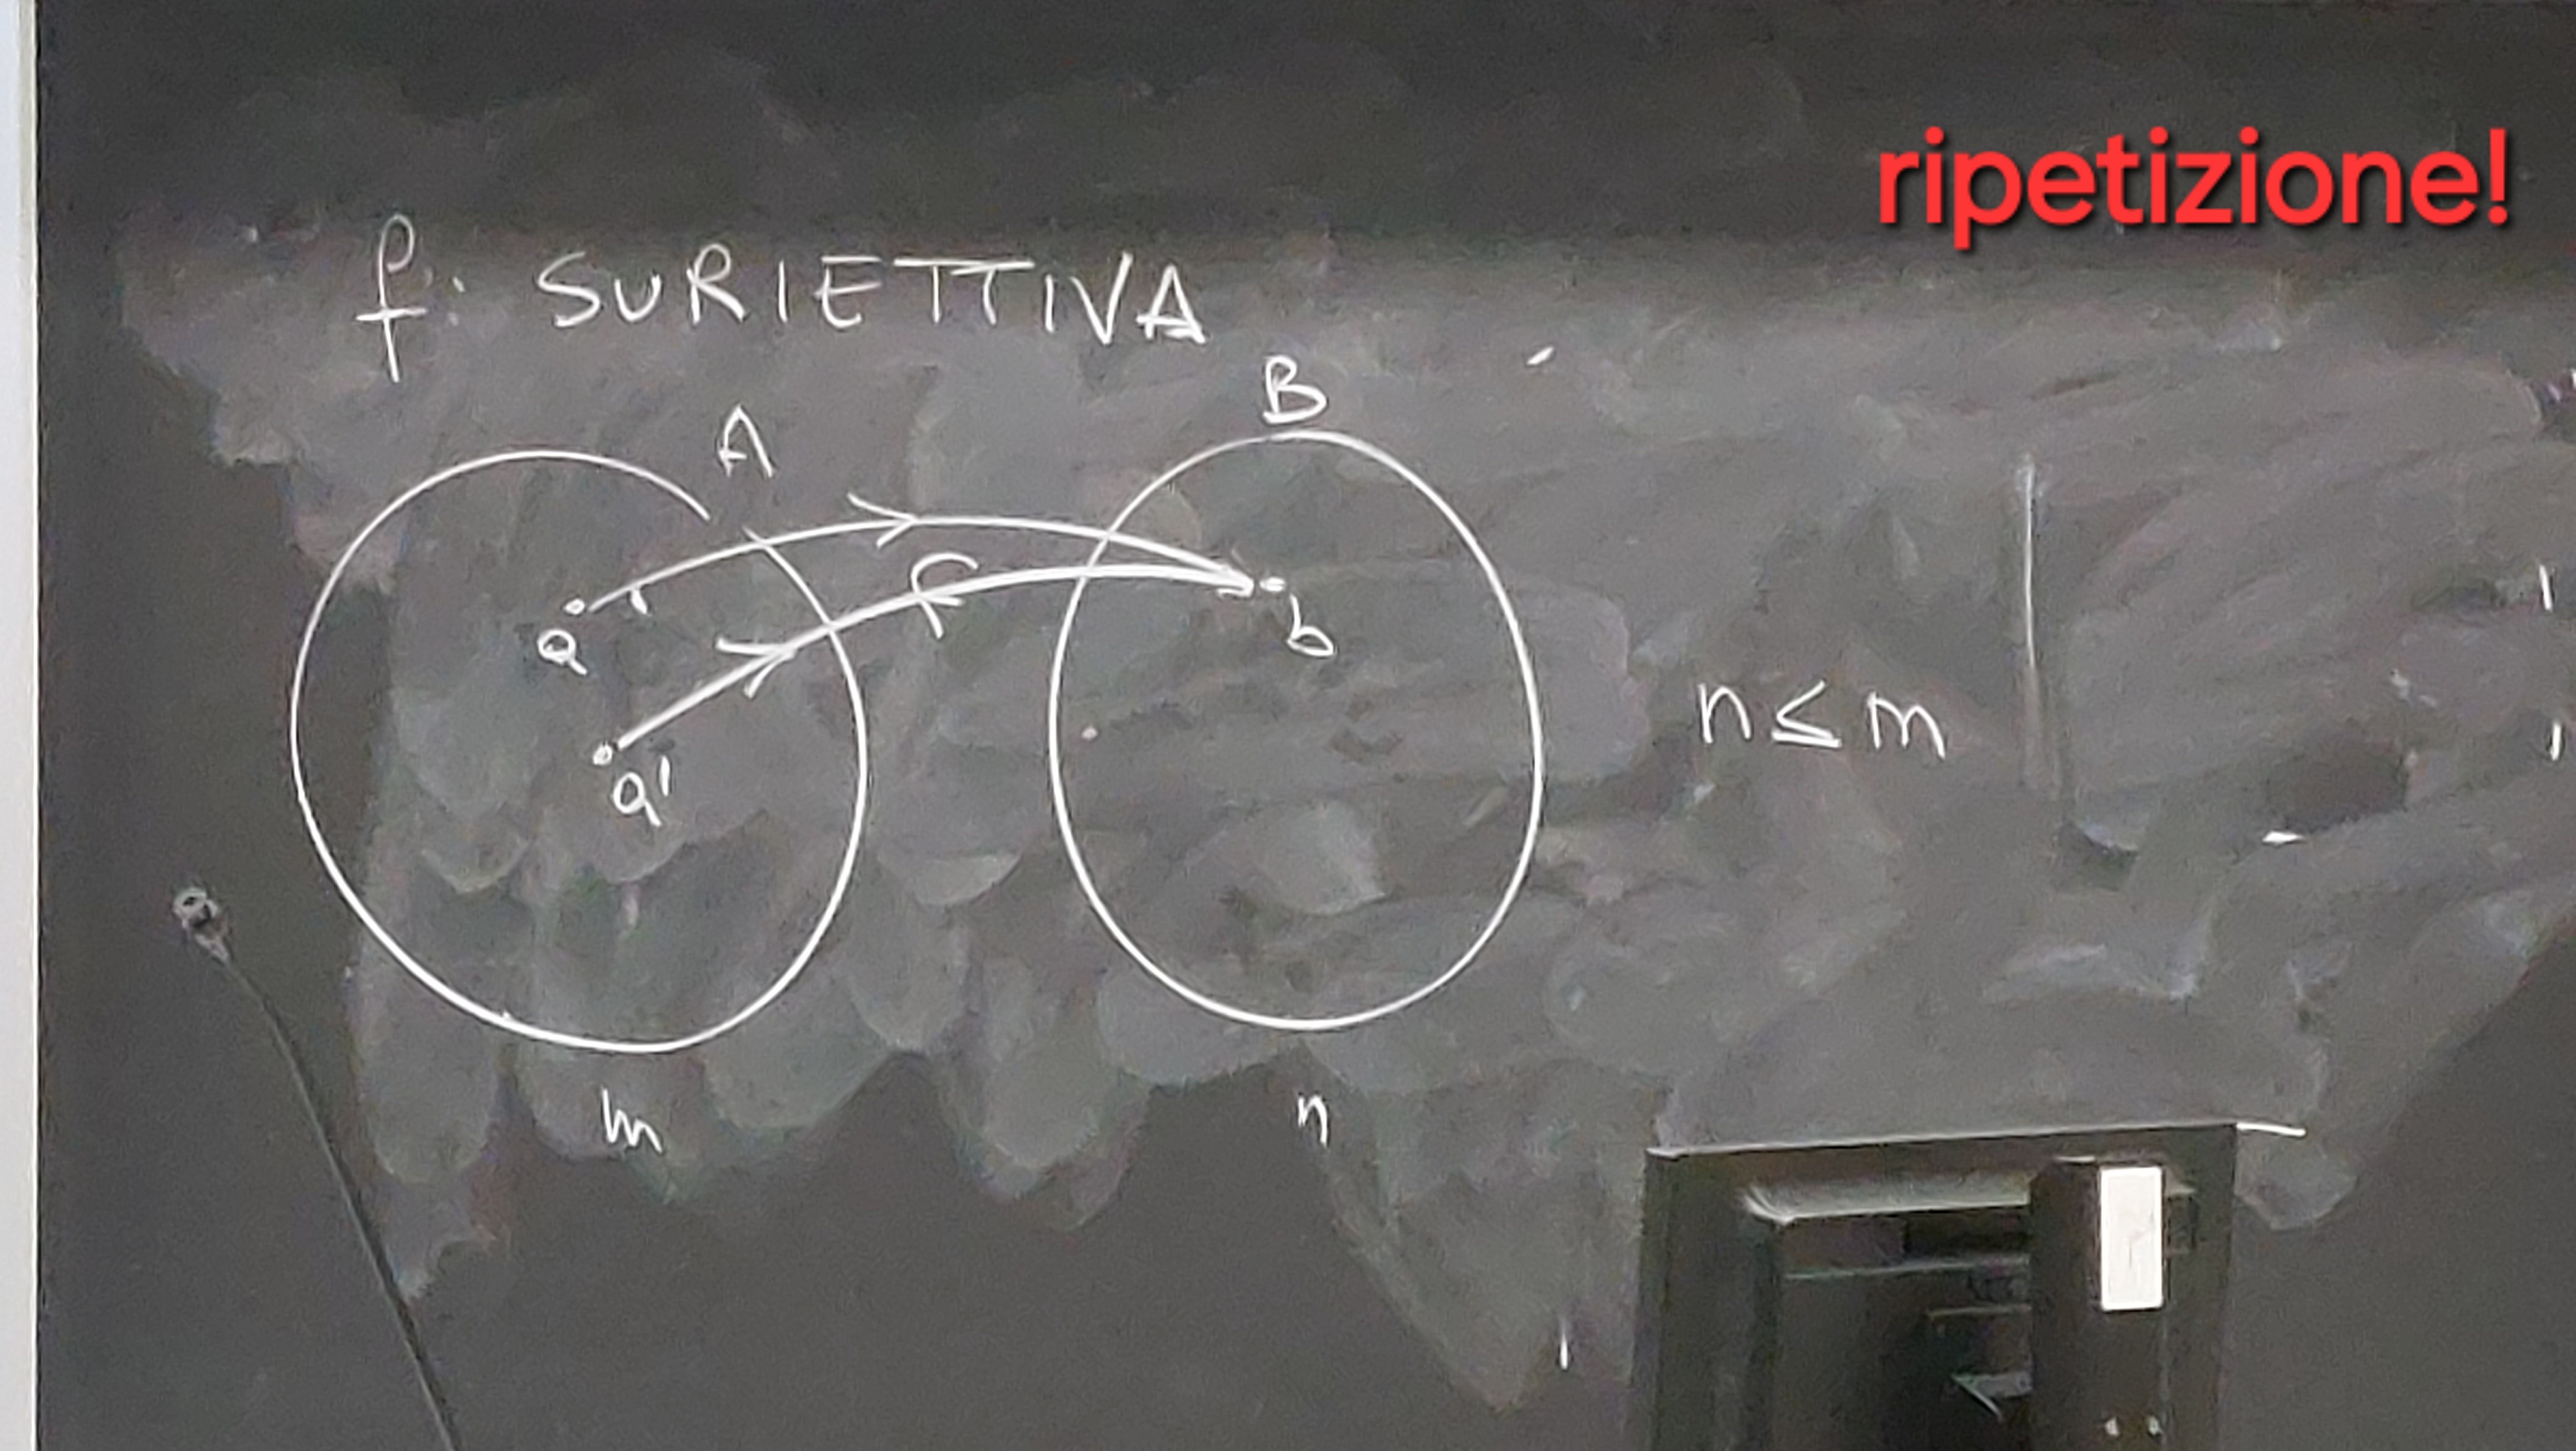 ripetizione!
f: SURIETTIVA
A
B
a
b
a'
n ≤ m
m
n